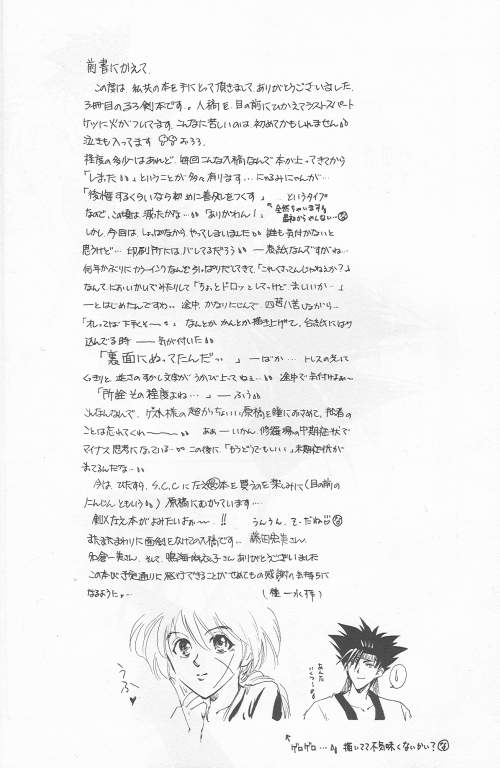 前書にかえて、
この度は、私共の本を手にとって頂きまして、ありがとうございました。
3冊目のるろ剣本です。人稿を目の前にひかえてラストスパート
ケツに火がついてます。こんなに苦しいのは、初めてかもしれません
泣きも入ってます おろろ。
程度の多少はあれど、毎回こんな入稿なんで本が上ってきてから
「しまった」ということが多々有ります…、なるみにゃんが…
「後悔するくらいなら初めに善処をつくす」というタイプ
なので、この頃は減ったかな…「ありがわん!」
全然ちゃいます
しかし、今回は、しょっぱなから、やってしまいました 誰も気付かないと
思うけど…印刷所にはバレてるだろう ― 表紙なんですがね…
何年かぶりにカラーインクなんぞをひっぱりだしてきて「これくさってんじゃねぇか?」
なんて、においかいでみたりして「ちょっとドロッとしてっけど、ましいか…」
―とはじめたんですわ。途中、かなりにじんで、四苦八苦しながら…
「オレってば下手くそ〜」なんとか かんとか描き上げて、台紙にはり
込んでる時 ― 気が付いた
「裏面にぬってたんだっ。」―ばか…トレスのうえに
くっきりと、逆さのすかし文字がうかび上ってねぇ… 途中で気付けよぉ〜
「所詮その程度よね…」― ふぅ
こんなんなんで、ゲスト様の超かっちょいい原稿を瞳におさめて、拙者の
ことは忘れてくれ〜 あぁーいかん、修羅場の中期症状で
マイナス思考になっている… この後に、「もうどうでもいい」末期症状が
まってるんだな…
今は、ひたすら、S.C.Cに左之本を買うのを楽しみに(目の前の
にんじんともいう)原稿にむかっています…
剣×左之本がよみたいよぉ〜。!! うんうん、て・だね
またまたまわりに面倒をかけての入稿です… 藤田宏美さん、
名倉一美さん、そして、鳴海麻衣子さん ありがとうございました
この本が予定通りに発行できることがせめてもの感謝の気持ちに
なるように。
うふ♥
あんた
いくつ…
ゲロゲロ… 描いてて不気味くないかい?な